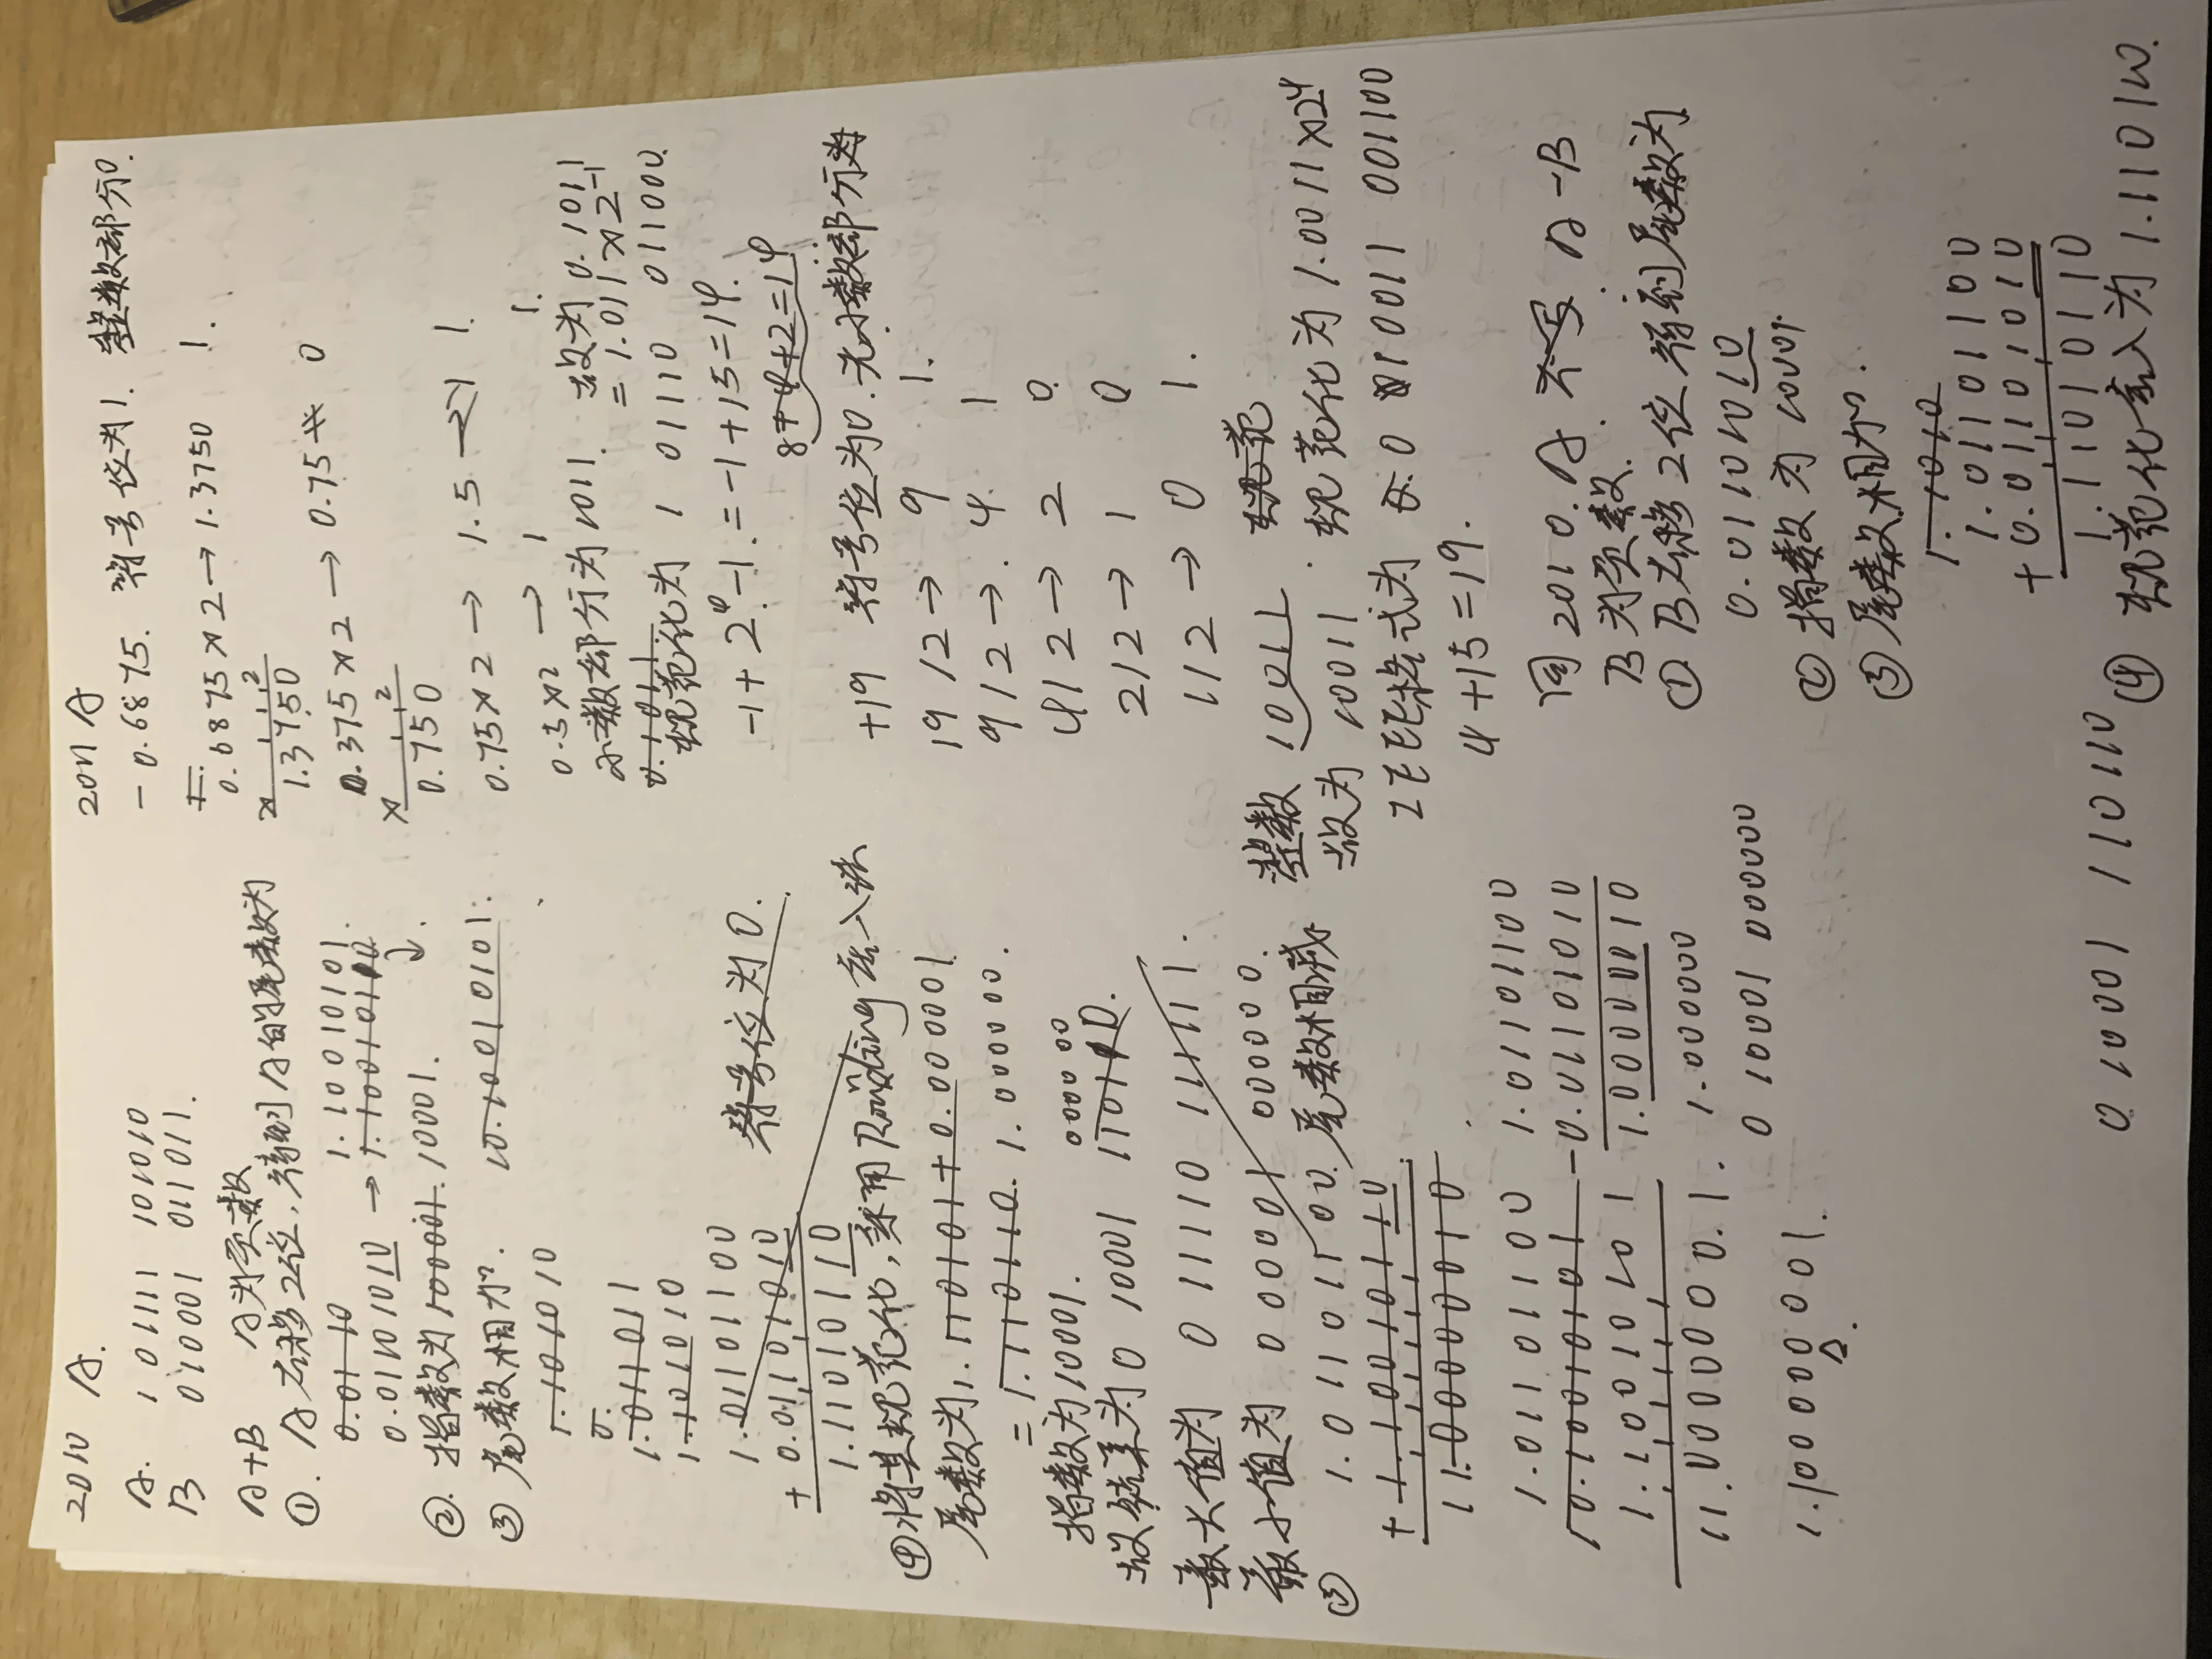 2010 A.
A. 1 01111 101010
B 0 10001 011011.
A+B A为负数
①. A右移2位,得到A的尾数为
0.01 10 1.100 10101.
0.01101010 → 1.10010110
②. 指数为10001.10001.
③ 尾数相加. 10.10010101.
1.101010
0.
1.011011
1.101010
1.01101100
+ 0.01101010 符号位为0.
1.11010110
④将其规范化,采用Rounding 舍入法
尾数为1.110101+0.000001
= 1.110110. 1.000000.
指数为10001. 000000
故结果为0 10001 110110.
最大值为 0 11110 111111.
最小值为 0 00001 000000.
③ 1.01101100. 尾数相减
+ 1.10010110
1.00000010
1.01101100 1.01101100
10.10010101 - 0.01101010
1.10010101 1.00000010
11.00000001. 1.000000
0 10001 000000
1.100000001.
2011 A
-0.6875. 符号位为1. 整数部分0.
0.6875×2→1.3750 1.
× 2
1.3750
0.375×2→0.75 0
× 2
0.750
0.75×2→ 1.5 → 1 1.
0.5×2 → 1 1.
小数部分为1011. 故为0.1011
0.1011 = 1.011×2-1
规范化为 1 01110 011000.
-1+2⁴-1.=-1+15=14.
8+4+2=14
+19 符号位为0.无小数部分为
19/2→ 9 1.
9/2→. 4. 1
4/2→ 2 0.
2/2→ 1 0
1/2→ 0 1.
整数 10011 . 规范
故为 10011 . 规范化为1.0011×24
IEEE格式为 0 10011 001100
4+15=19.
同2010.A. 不写. A-B
B为负数.
①B右移2位得到尾数为
0.01101010
②指数为10001.
③尾数相加.
1.1010
1.01101100
+ 0.01101010
1.11010110
④ 规范化舍入为1.110110.
0 10001 110110